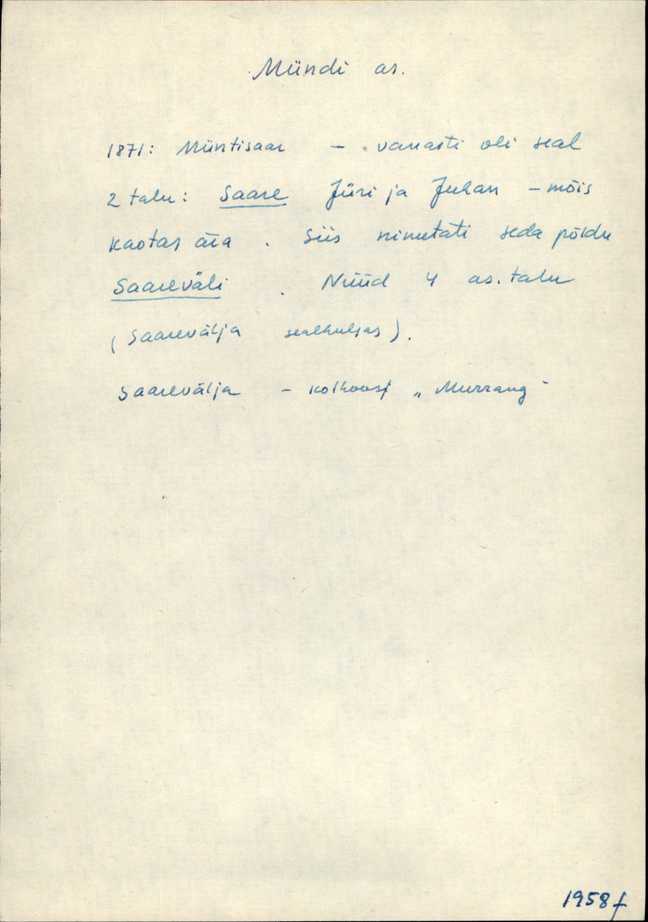 Mündi as.
1871: Müntisaar - vanasti oli seal
2 talu: Saare Jüri ja Juhan - mõis
kaotas ära. Siis nimetati seda põldu
Saareväli. Nüüd 4 as. talu
(Saarevälja sealhulgas).
Saarevälja - kolhoosi „Murrang"
1958 f